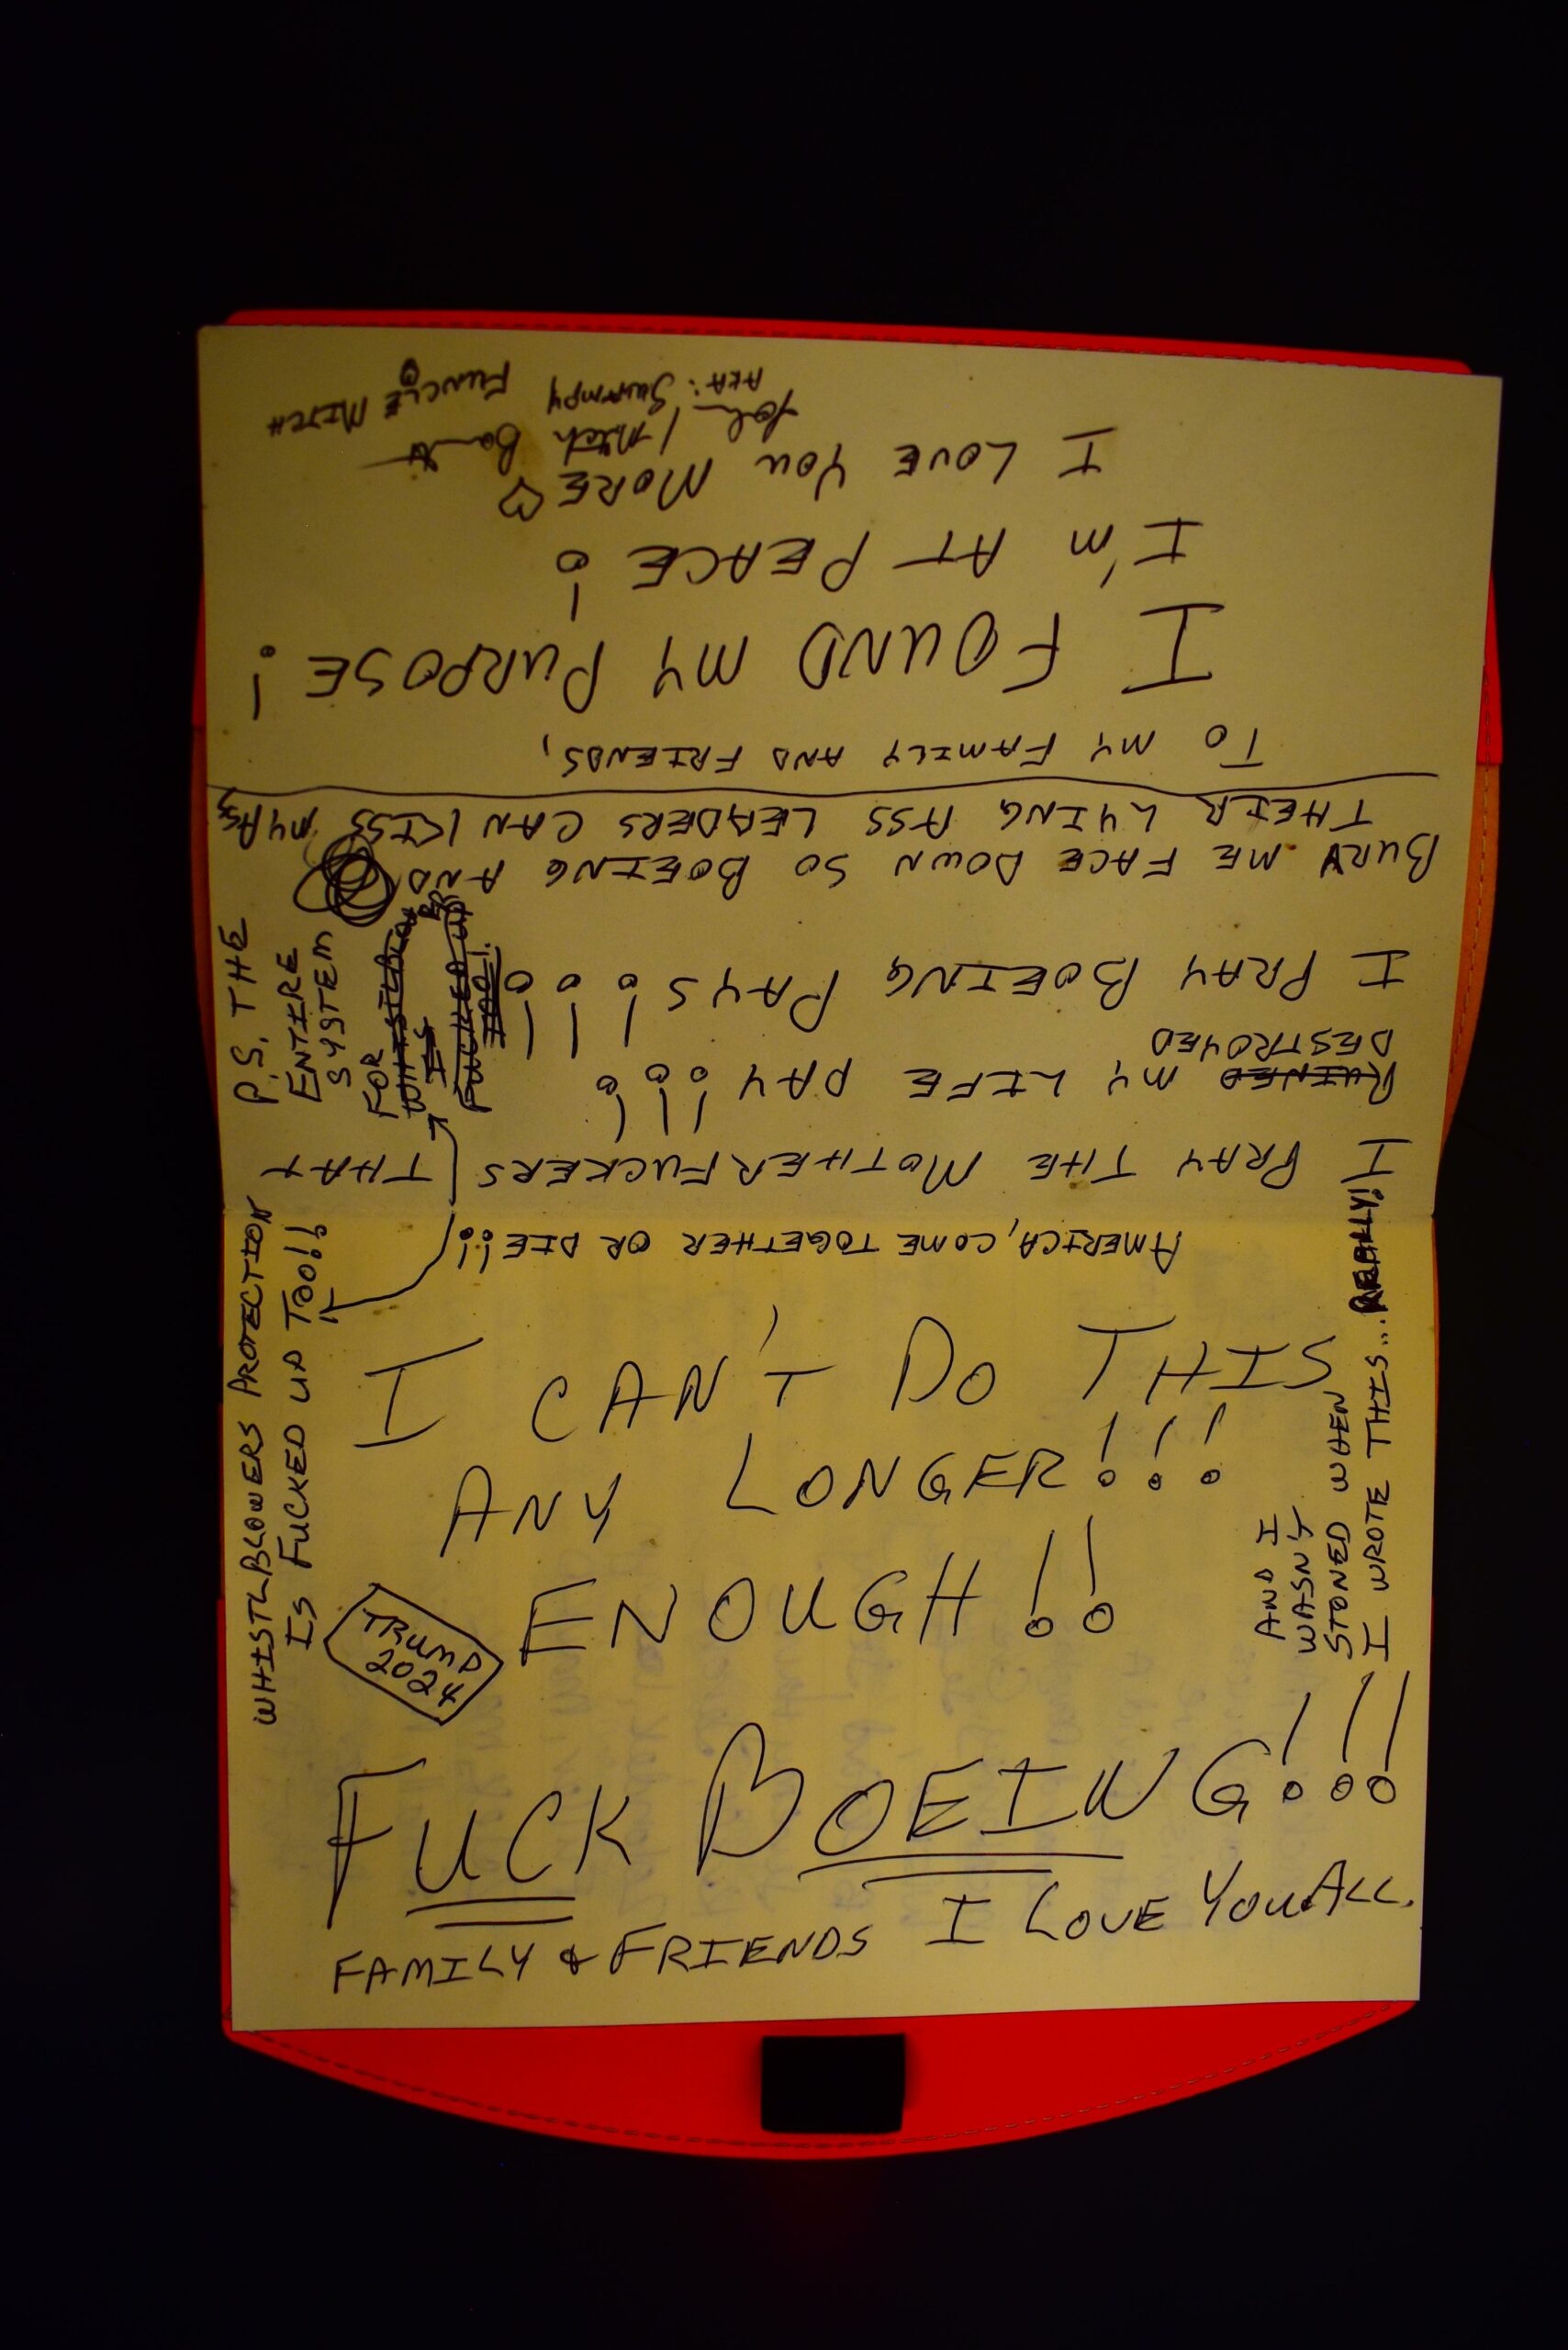 I CAN'T DO THIS
ANY LONGER!!!
ENOUGH!!
FUCK BOEING!!!
FAMILY & FRIENDS I LOVE YOU ALL.
TRUMP
2024
AND I
WASN'T
STONED WHEN
I WROTE THIS... REALLY!
P.S. THE
ENTIRE
SYSTEM
FOR
WHISTLBLOWERS PROTECTION
IS FUCKED UP TOO!!
AMERICA, COME TOGETHER OR DIE!!!
I PRAY THE MOTHERFUCKERS THAT
RUINED MY LIFE PAY!!!!
DESTROYED
I PRAY BOEING PAYS!!!!
BURY ME FACE DOWN SO BOEING AND
THEIR LYING ASS LEADERS CAN KISS MY ASS
TO MY FAMILY AND FRIENDS,
I FOUND MY PURPOSE!
I'M AT PEACE!
I LOVE YOU MORE♡
Mitch
AKA: SWAMPY
FUNCLE MITCH